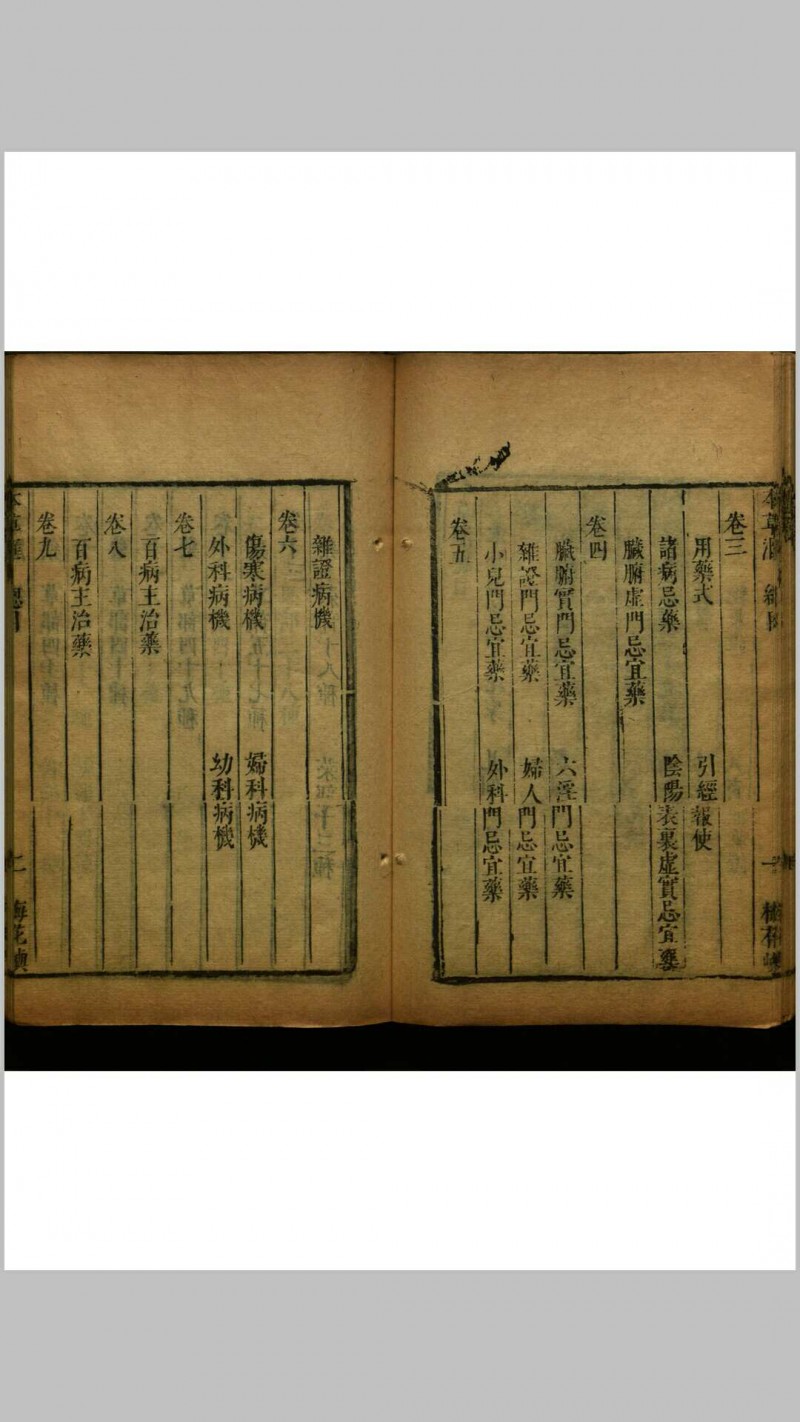 卷三
用藥式 引經報使
諸病忌藥 陰陽表裏虛實忌宜藥
臟腑虛門忌宜藥
卷四
臟腑實門忌宜藥 六淫門忌宜藥
雜證門忌宜藥 婦人門忌宜藥
小兒門忌宜藥 外科門忌宜藥
卷五
雜證病機
卷六
傷寒病機 婦科病機
外科病機 幼科病機
卷七
百病主治藥
卷八
百病主治藥
卷九
二